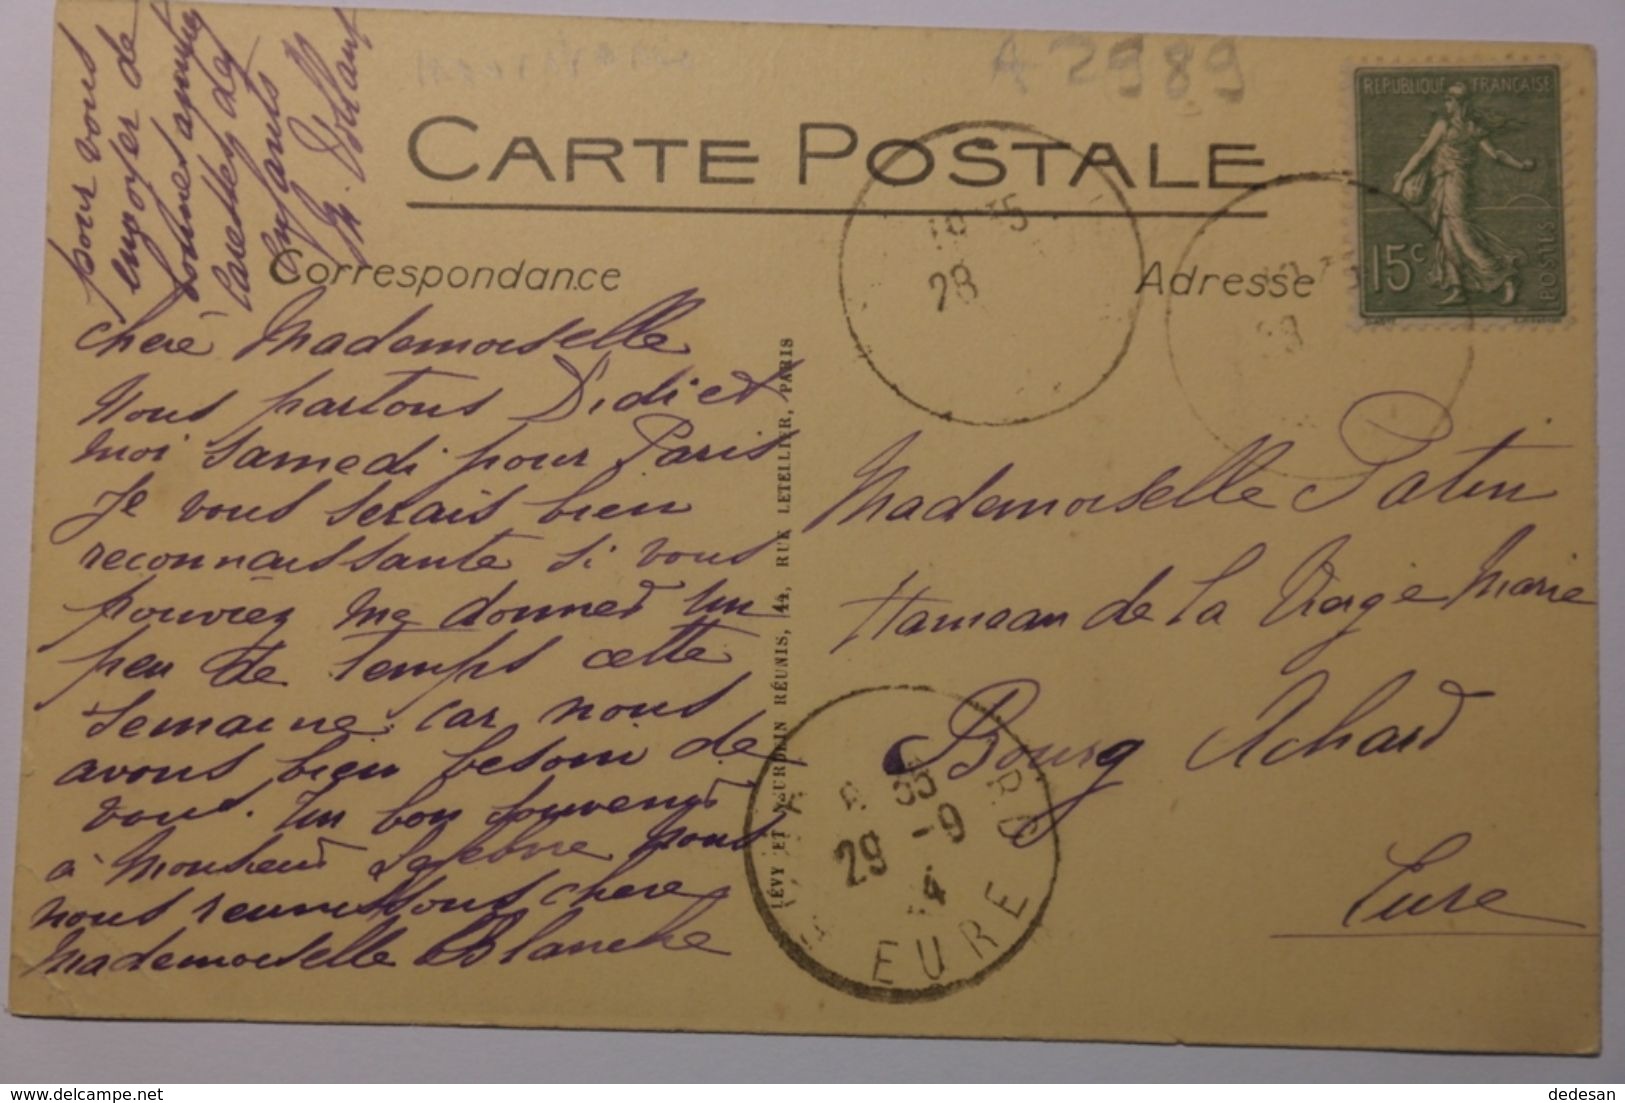 A 2989
CARTE POSTALE
Correspondance
Adresse
REPUBLIQUE FRANÇAISE
15c
POSTES
28
chere Mademoiselle
Nous partons Didier et
moi samedi pour Paris
Je vous serais bien
reconnaissante si vous
pouviez me donner un
peu de temps cette
semaine car nous
avons bien besoin de
vous. Un bon souvenir
à Monsieur Lefebvre nous
nous reunissons chere
Mademoiselle Blanche
pour vous
envoyer de
bonnes
des
enfants
LÉVY ET NEURDEIN RÉUNIS, 44, RUE LETELLIER, PARIS
Mademoiselle Patin
Hameau de la Vierge Marie
Bourg Achard
Eure
35
29 -9
EURE
dedesan